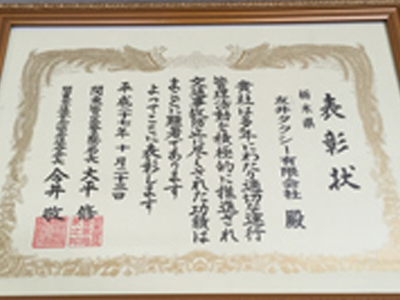 表彰状
栃木県
友井タクシー有限会社 殿
貴社は多年にわたり適切な運行
管理活動を積極的に推進され
交通事故防止に尽くされた功績は
まことに顕著であります
よってここに表彰します
平成二十七年十月二十三日
関東 長 大平 修
長 今井 敬